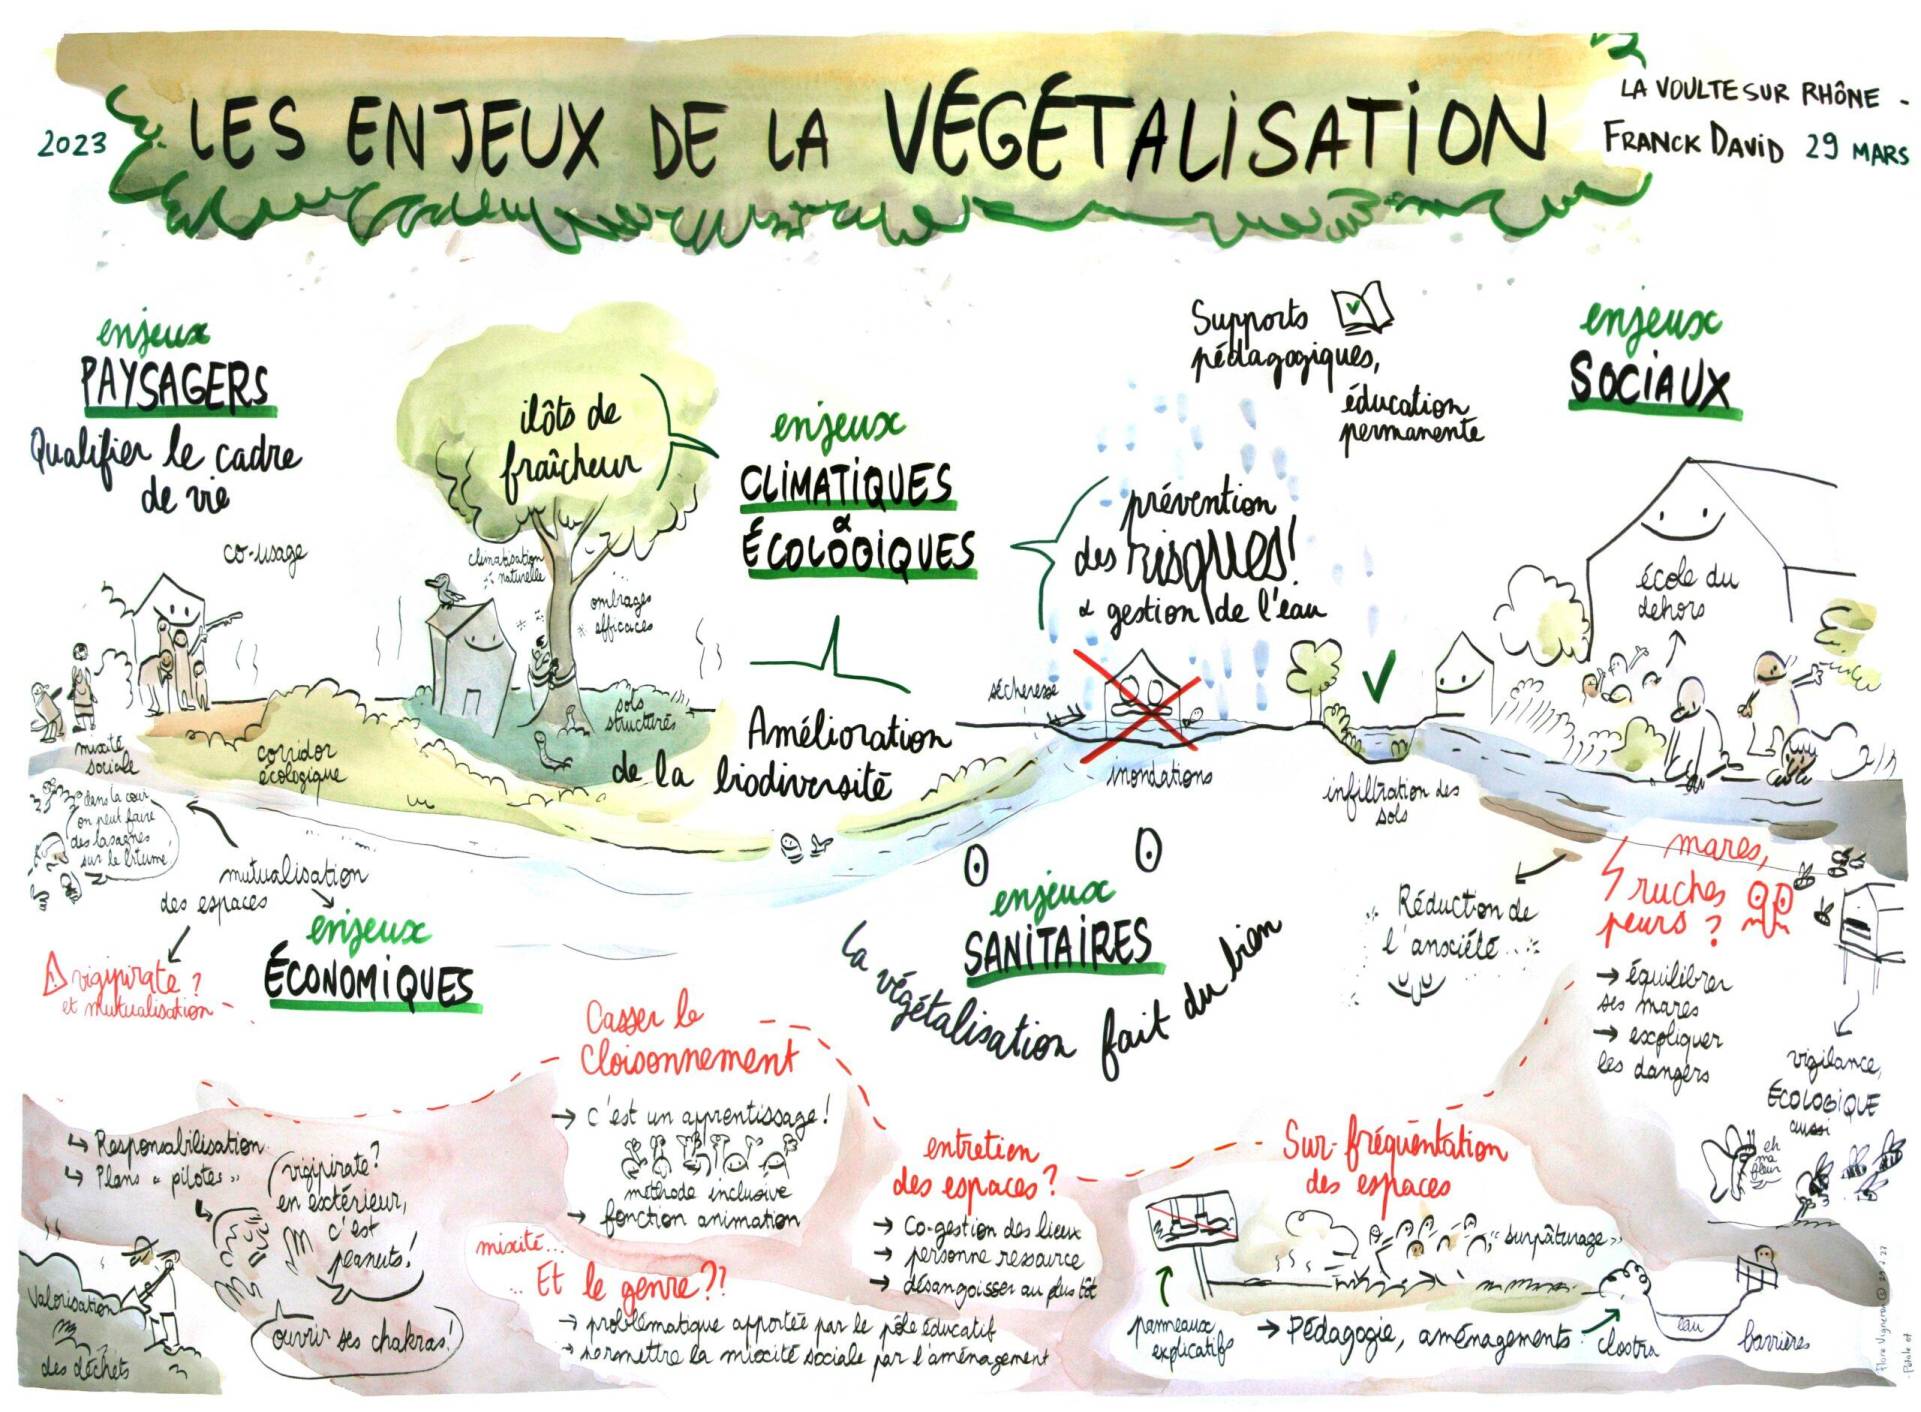 2023
LES ENJEUX DE LA VÉGÉTALISATION
LA VOULTE SUR RHÔNE -
FRANCK DAVID 29 MARS
enjeux
PAYSAGERS
Qualifier le cadre
de vie
co-usage
mixité
sociale
corridor
écologique
îlots de
fraîcheur
climatisation
naturelle
ombrages
efficaces
sols
structurés
enjeux
CLIMATIQUES
&
ÉCOLOGIQUES
Amélioration
de la biodiversité
prévention
des risques!
& gestion de l'eau
sécheresse
inondations
infiltration des
sols
Supports
pédagogiques,
éducation
permanente
enjeux
SOCIAUX
école du
dehors
dans la cour
on peut faire
des lasagnes
sur le bitume!
mutualisation
des espaces
vigipirate?
et mutualisation -
enjeux
ÉCONOMIQUES
enjeux
SANITAIRES
La végétalisation fait du bien
Réduction de
l'anxiété
mares,
ruches
peurs?
→ équilibrer
ses mares
→ expliquer
les dangers
vigilance,
ÉCOLOGIQUE
aussi
eh
ma
fleur
Responsabilisation
Plans "pilotes"
vigipirate?
en extérieur,
c'est
peanuts!
ouvrir ses chakras!
Valorisation
des déchets
Casser le
cloisonnement
→ c'est un apprentissage!
méthode inclusive
→ fonction animation
mixité...
... Et le genre??
→ problématique apportée par le pôle éducatif
→ permettre la mixité sociale par l'aménagement
entretien
des espaces?
→ Co-gestion des lieux
→ personne ressource
→ désangoisser au plus tôt
Sur-fréquentation
des espaces
"surpâturage"
panneaux
explicatifs
→ Pédagogie, aménagements:
clostra
eau
barrières
Flore Vigneron